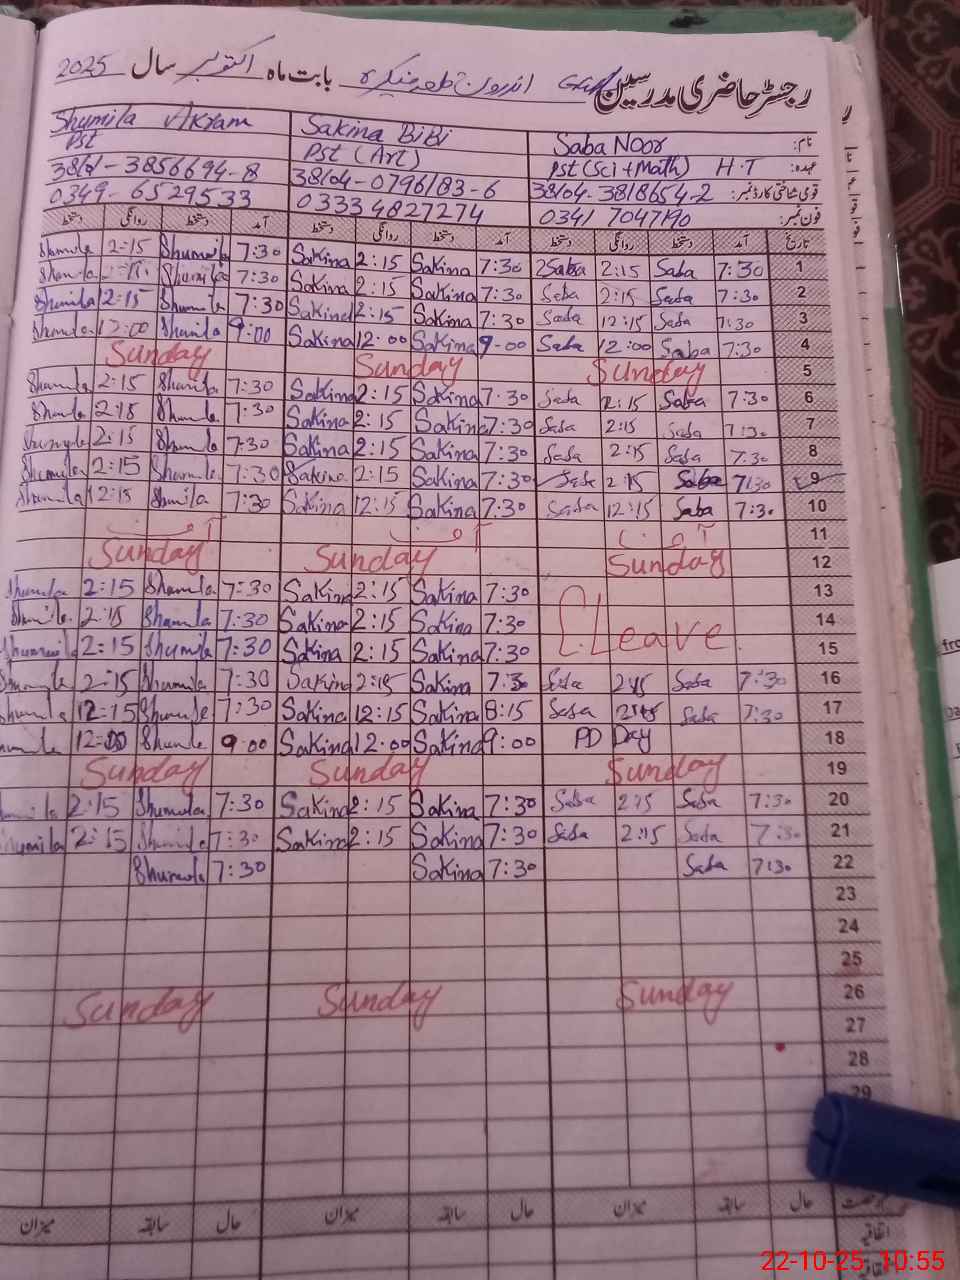 رجسٹر حاضری مدرسین GGPS اندرون قلعہ منکیرہ بابت ماہ اکتوبر سال 2025
نام: Saba Noor Sakina BiBi Shumila Akram
عہدہ: Pst (Sci + Math) H.T Pst (Art) Pst
قومی شناختی کارڈ نمبر: 38104-3818654-2 38104-0796183-6 38101-3856694-8
فون نمبر: 0341 7047190 03334827274 0349-6529533
تاریخ آمد دستخط روانگی دستخط آمد دستخط روانگی دستخط آمد دستخط روانگی دستخط
1 7:30 Saba 2:15 Saba 7:30 Sakina 2:15 Sakina 7:30 Shumila 2:15 Shumila
2 7:30 Saba 2:15 Saba 7:30 Sakina 2:15 Sakina 7:30 Shumila 2:15 Shumila
3 7:30 Saba 12:15 Saba 7:30 Sakina 2:15 Sakina 7:30 Shumila 12:15 Shumila
4 7:30 Saba 12:00 Saba 9:00 Sakina 12:00 Sakina 9:00 Shumila 12:00 Shumila
5 Sunday Sunday Sunday
6 7:30 Saba 2:15 Saba 7:30 Sakina 2:15 Sakina 7:30 Shumila 2:15 Shumila
7 7:30 Saba 2:15 Saba 7:30 Sakina 2:15 Sakina 7:30 Shumila 2:15 Shumila
8 7:30 Saba 2:15 Saba 7:30 Sakina 2:15 Sakina 7:30 Shumila 2:15 Shumila
9 7:30 Saba 2:15 Saba 7:30 Sakina 2:15 Sakina 7:30 Shumila 2:15 Shumila
10 7:30 Saba 12:15 Saba 7:30 Sakina 12:15 Sakina 7:30 Shumila 12:15 Shumila
11
12 Sunday Sunday Sunday
13 7:30 Sakina 2:15 Sakina 7:30 Shumila 2:15 Shumila
14 Leave 7:30 Sakina 2:15 Sakina 7:30 Shumila 2:15 Shumila
15 7:30 Sakina 2:15 Sakina 7:30 Shumila 2:15 Shumila
16 7:30 Saba 2:15 Saba 7:30 Sakina 2:15 Sakina 7:30 Shumila 2:15 Shumila
17 7:30 Saba Saba 8:15 Sakina 12:15 Sakina 7:30 Shumila 12:15 Shumila
18 PD Day 9:00 Sakina 12:00 Sakina 9:00 Shumila 12:00 Shumila
19 Sunday Sunday Sunday
20 7:30 Saba 2:15 Saba 7:30 Sakina 2:15 Sakina 7:30 Shumila 2:15 Shumila
21 7:30 Saba 2:15 Saba 7:30 Sakina 2:15 Sakina 7:30 Shumila 2:15 Shumila
22 7:30 Saba 7:30 Sakina 7:30 Shumila
23
24
25
26 Sunday Sunday Sunday
27
28
29
حال سابقہ میزان حال سابقہ میزان حال سابقہ میزان
اتفاقیہ
22-10-25, 10:55